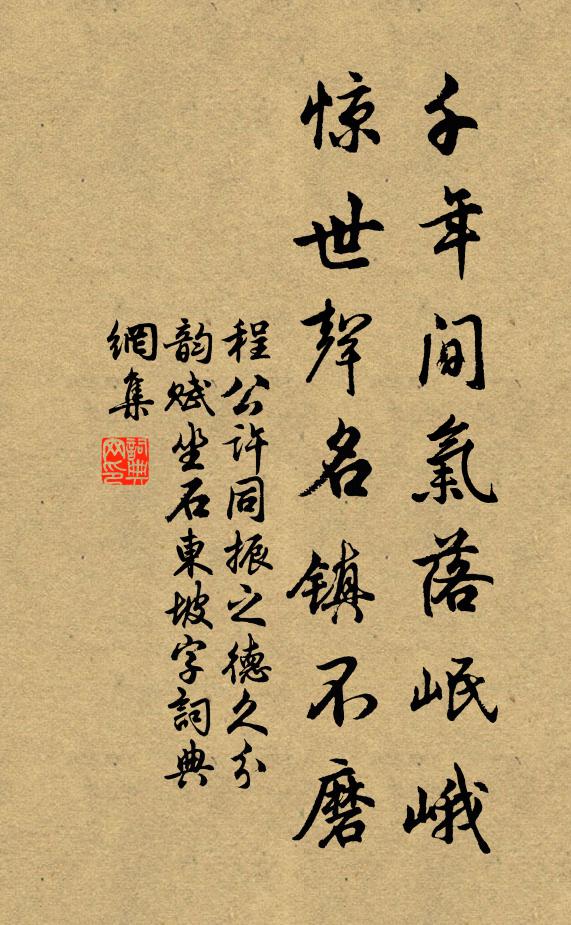 千年間氣落岷峨
惊世聲名镇不磨
程公许同振之德久分
韵赋坐石東坡字詞典
網集
詞典网印